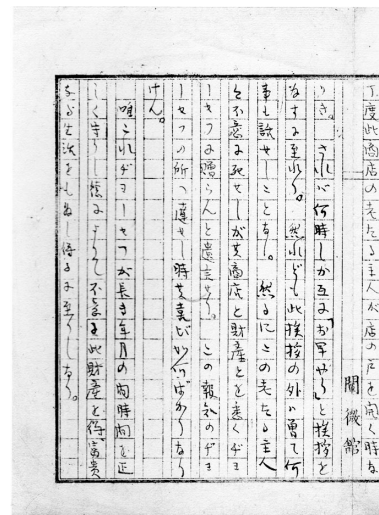 丁度此商店の老たる主人が店の戸を開く時な
りき。されバ何時しか互に「お早やう」と挨拶を
なすに至れり。然れども此挨拶の外ハ曽て何
事も話せしことなし。然るにこの老たる主人
ハ不意に死せしが其商店と財産とを悉くヂヨ
ーセフに贈らんと遺言せり。この報知のヂヨ
ーセフの所へ達せし時其喜び如何ばかりなり
けん。
唯これヂヨーセフが長き年月の間時間を正
しく守りし徳によりて不意に此財産を得、富貴
なる生活をもなし得るに至りしなり。
開微館